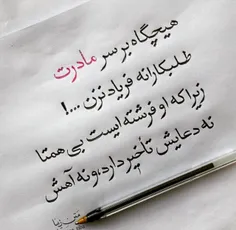 هیچگاه بر سر مادرت
طلبکارانه فریاد نزن ...!
زیرا که او فرشته ایست بی همتا
نه دعایش تأخیر دارد، و نه آهش